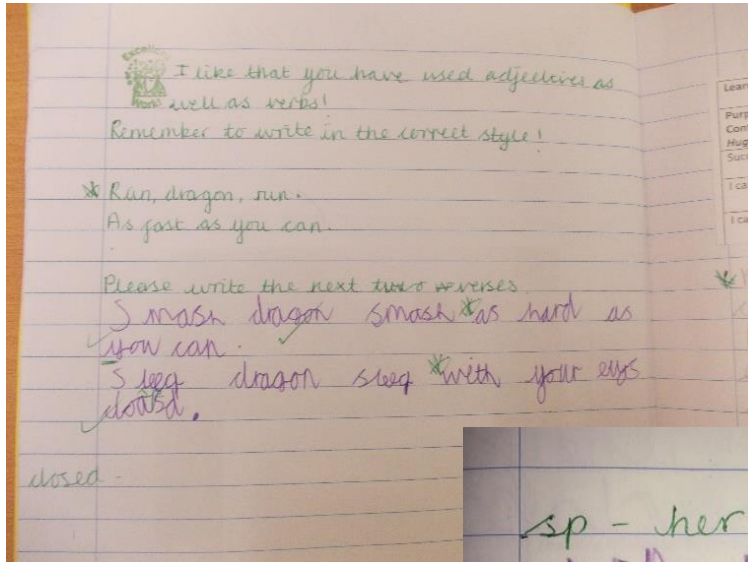 Excellent
Work
I like that you have used adjectives as
well as verbs!
Remember to write in the correct style!
* Run, dragon, run.
As fast as you can.
Please write the next two verses
Smash dragon smash *as hard as
you can.
Sleep dragon sleep *with your eys
closed.
closed
Lear
Purp
Con
Hug
Suc
I ca
I ca
sp - her